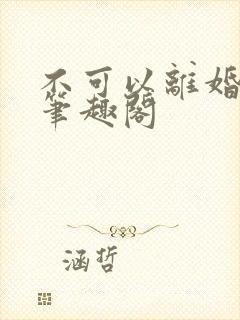 不可以離婚
筆趣閣
涵哲